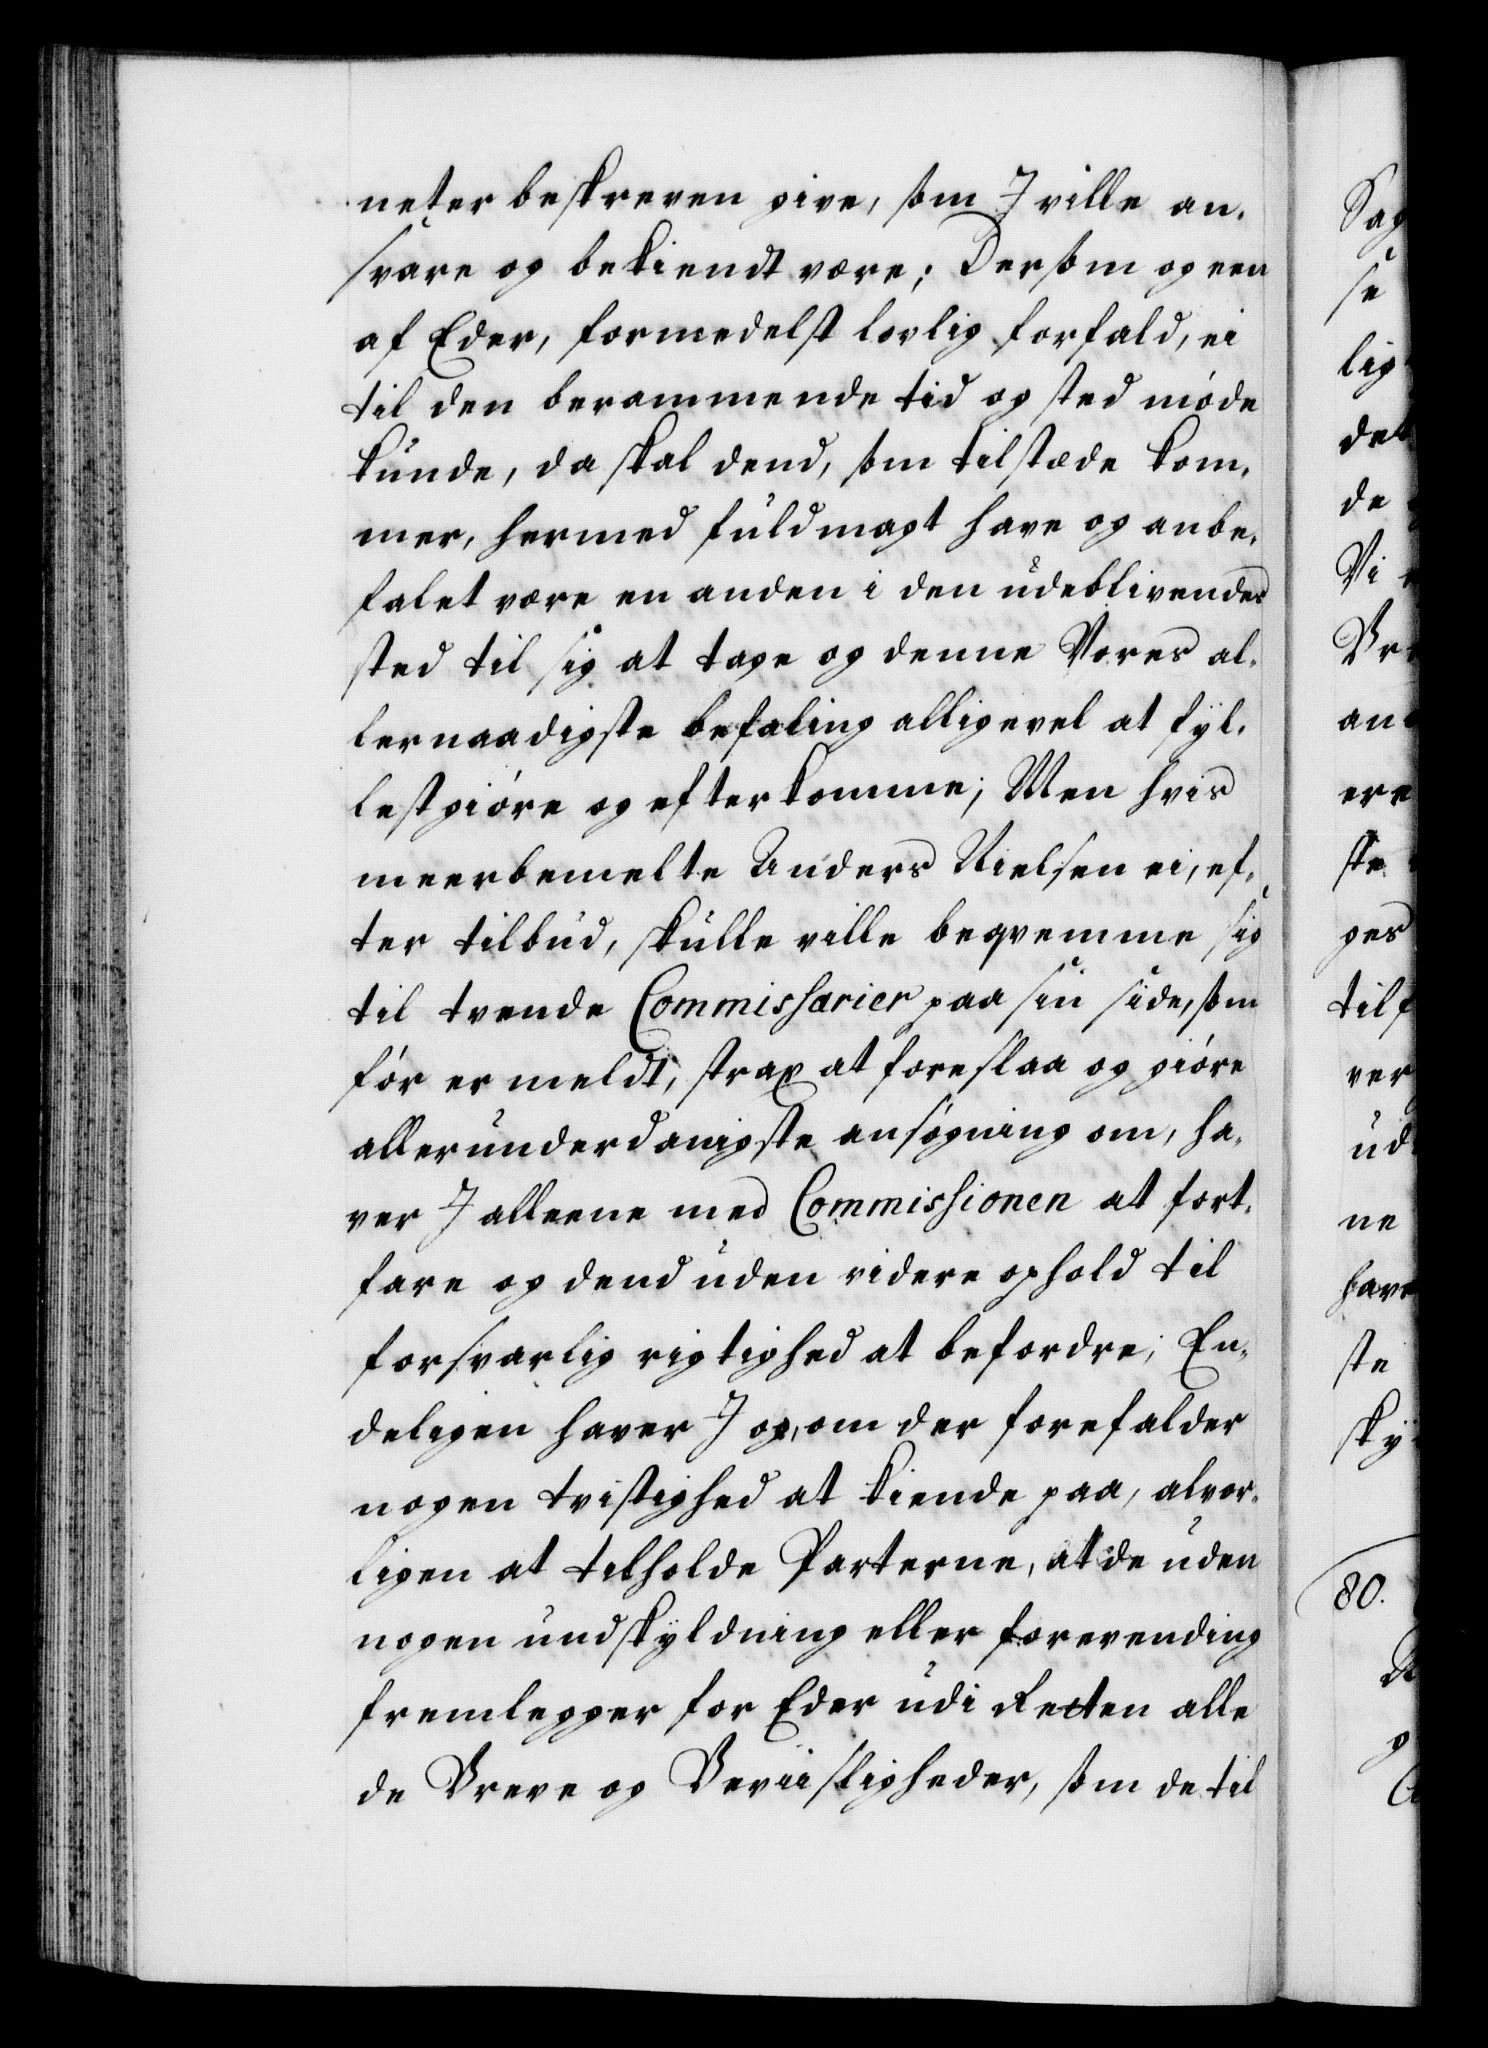 neter beskreven give, som I ville an-
svare og bekiendt være; Dersom og een
af Eder, formedelst lovlig forfald, ei
til den berammende tid og sted møde
kunde, da skal dend, som tilstæde kom-
mer, hermed fuldmagt have og anbe-
falet være en anden i den udeblivendes
sted til sig at tage og denne Vores al-
lernaadigste befaling alligevel at fyl-
lestgiøre og efterkomme; Men hvis
meerbemelte Anders Nielsen ei, ef-
ter tilbud, skulle ville beqvemme sig
til tvende Commissarier paa sin side, som
før er meldt, strax at foreslaa og giøre
allerunderdanigste ansøgning om, ha-
ver I alleene med Commissionen at fort-
fare og dend uden videre ophold til
forsvarlig rigtighed at befordre; En-
deligen haver I og, om der forefalder
nogen tvistighed at kiende paa, alvor-
ligen at tilholde Parterne, at de uden
nogen undskyldning eller forevending
fremlegger for Eder udi Retten alle
de Breve og Beviisligheder, som de til
Sag
se
lig
det
de
Vi
Br
an
ere
ste
ges
tilf
ver
ud
ne
have
ste
sky
80.